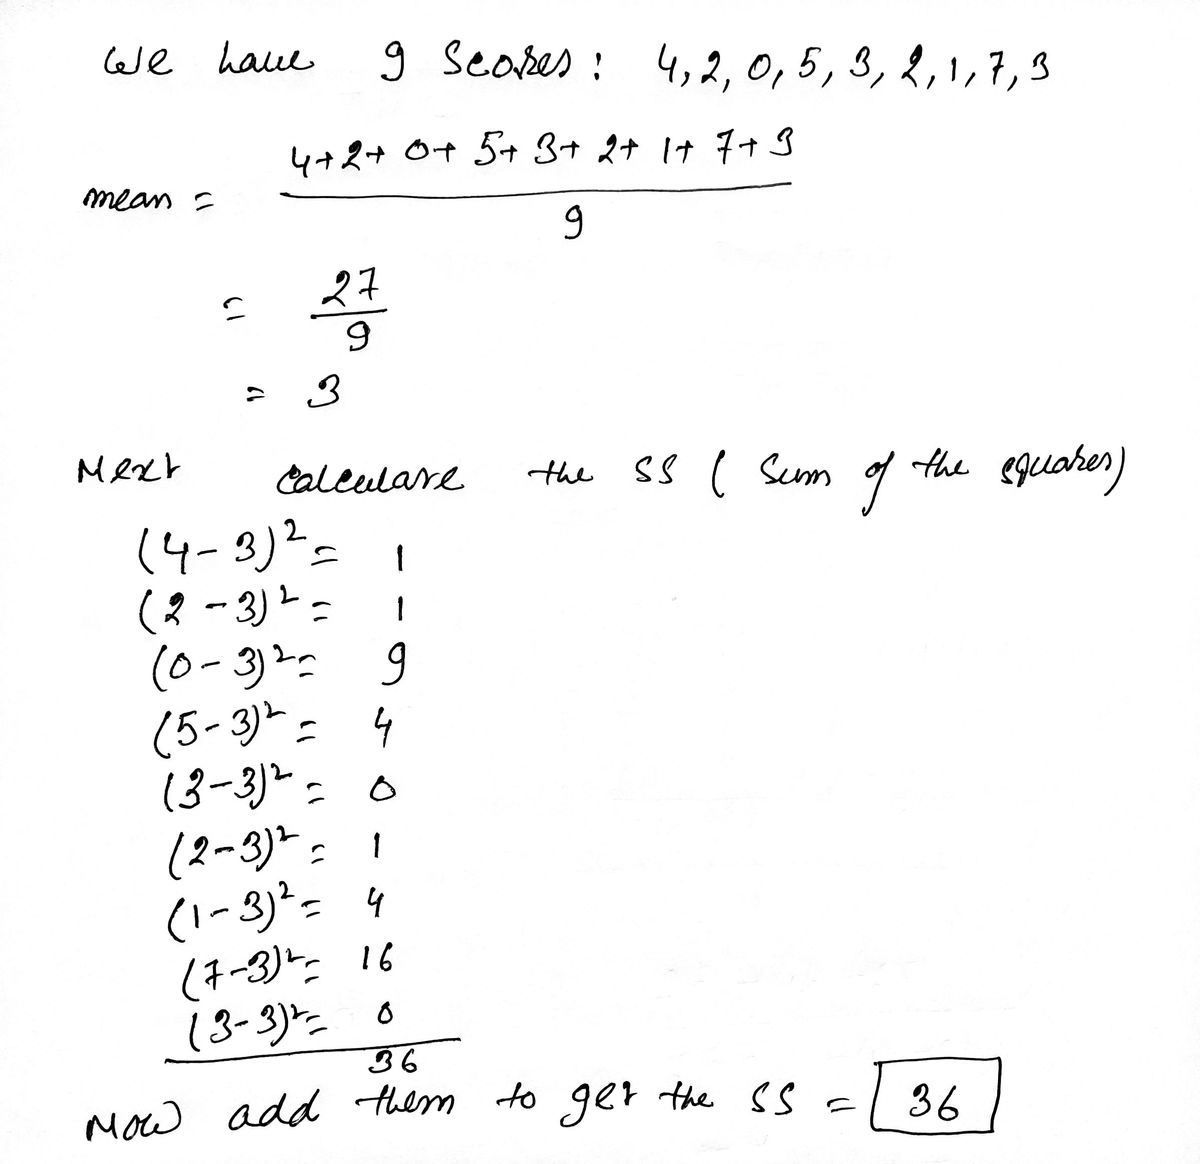 We have 9 Scores: 4,2,0,5,3,2,1,7,3
4+2+0+5+3+2+1+7+3
mean =
9
= 27
9
= 3
Next calculate the SS (Sum of the squares)
(4-3)² = 1
(2-3)² = 1
(0-3)² = 9
(5-3)² = 4
(3-3)² = 0
(2-3)² = 1
(1-3)² = 4
(7-3)² = 16
(3-3)² = 0
36
Now add them to get the SS = 36